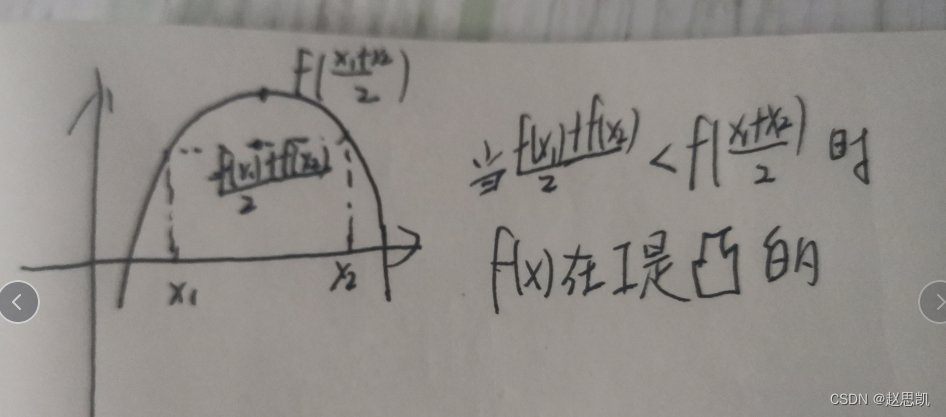 f((x₁+x₂)/2)
(f(x₁)+f(x₂))/2
x₁ x₂
当 (f(x₁)+f(x₂))/2 < f((x₁+x₂)/2) 时
f(x)在I是凸的
CSDN @赵思凯